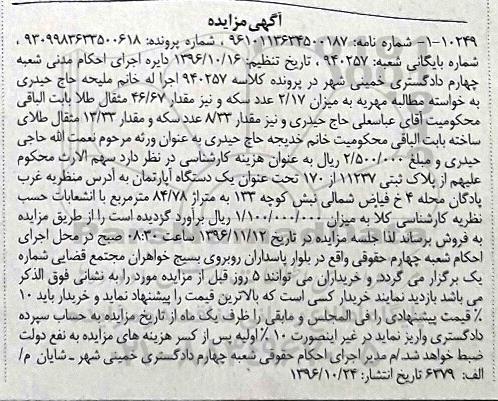 آگهی مزایده
۱۰۲۴۹-۱- شماره نامه: ۹۶۱۰۱۱۳۶۳۴۵۰۰۱۸۷ ، شماره پرونده: ۹۳۰۹۹۸۳۶۳۳۵۰۰۶۱۸ ،
شماره بایگانی شعبه: ۹۴۰۲۵۷ ، تاریخ تنظیم: ۱۳۹۶/۱۰/۱۶ دایره اجرای احکام مدنی شعبه
چهارم دادگستری خمینی شهر در پرونده کلاسه ۹۴۰۲۵۷ اجرا له خانم ملیحه حاج حیدری
به خواسته مطالبه مهریه به میزان ۲/۱۷ عدد سکه و نیز مقدار ۴۶/۶۷ مثقال طلا بابت الباقی
محکومیت آقای عباسعلی حاج حیدری و نیز مقدار ۸/۳۳ عدد سکه و مقدار ۱۳/۳۳ مثقال طلای
ساخته بابت الباقی محکومیت خانم خدیجه حاج حیدری به عنوان ورثه مرحوم نعمت الله حاجی
حیدری و مبلغ ۲/۵۰۰/۰۰۰ ریال به عنوان هزینه کارشناسی در نظر دارد سهم الارث محکوم
علیهم از پلاک ثبتی ۱۱۲۳۷ از ۱۷۰ تحت عنوان یک دستگاه آپارتمان به آدرس منظریه غرب
پادگان محله ۴ خ فیاض شمالی نبش کوچه ۱۳۳ به متراژ ۸۴/۷۸ مترمربع با انشعابات حسب
نظریه کارشناسی کلا به میزان ۱/۱۰۰/۰۰۰/۰۰۰ ریال برآورد گردیده است را از طریق مزایده
به فروش برساند لذا جلسه مزایده در تاریخ ۱۳۹۶/۱۱/۱۲ ساعت ۰۸:۳۰ صبح در محل اجرای
احکام شعبه چهارم حقوقی واقع در بلوار پاسداران روبروی بسیج خواهران مجتمع قضایی شماره
یک برگزار می گردد. و خریداران می توانند ۵ روز قبل از مزایده مورد را به نشانی فوق الذکر
می باشد بازدید نمایند خریدار کسی است که بالاترین قیمت را پیشنهاد نماید و خریدار باید ۱۰
٪ قیمت پیشنهادی را فی المجلس و مابقی را ظرف یک ماه از تاریخ مزایده به حساب سپرده
دادگستری واریز نماید در غیر اینصورت ۱۰٪ اولیه پس از کسر هزینه های مزایده به نفع دولت
ضبط خواهد شد./م مدیر اجرای احکام حقوقی شعبه چهارم دادگستری خمینی شهر ـ شایان م/
الف: ۶۳۷۹ تاریخ انتشار: ۱۳۹۶/۱۰/۲۴